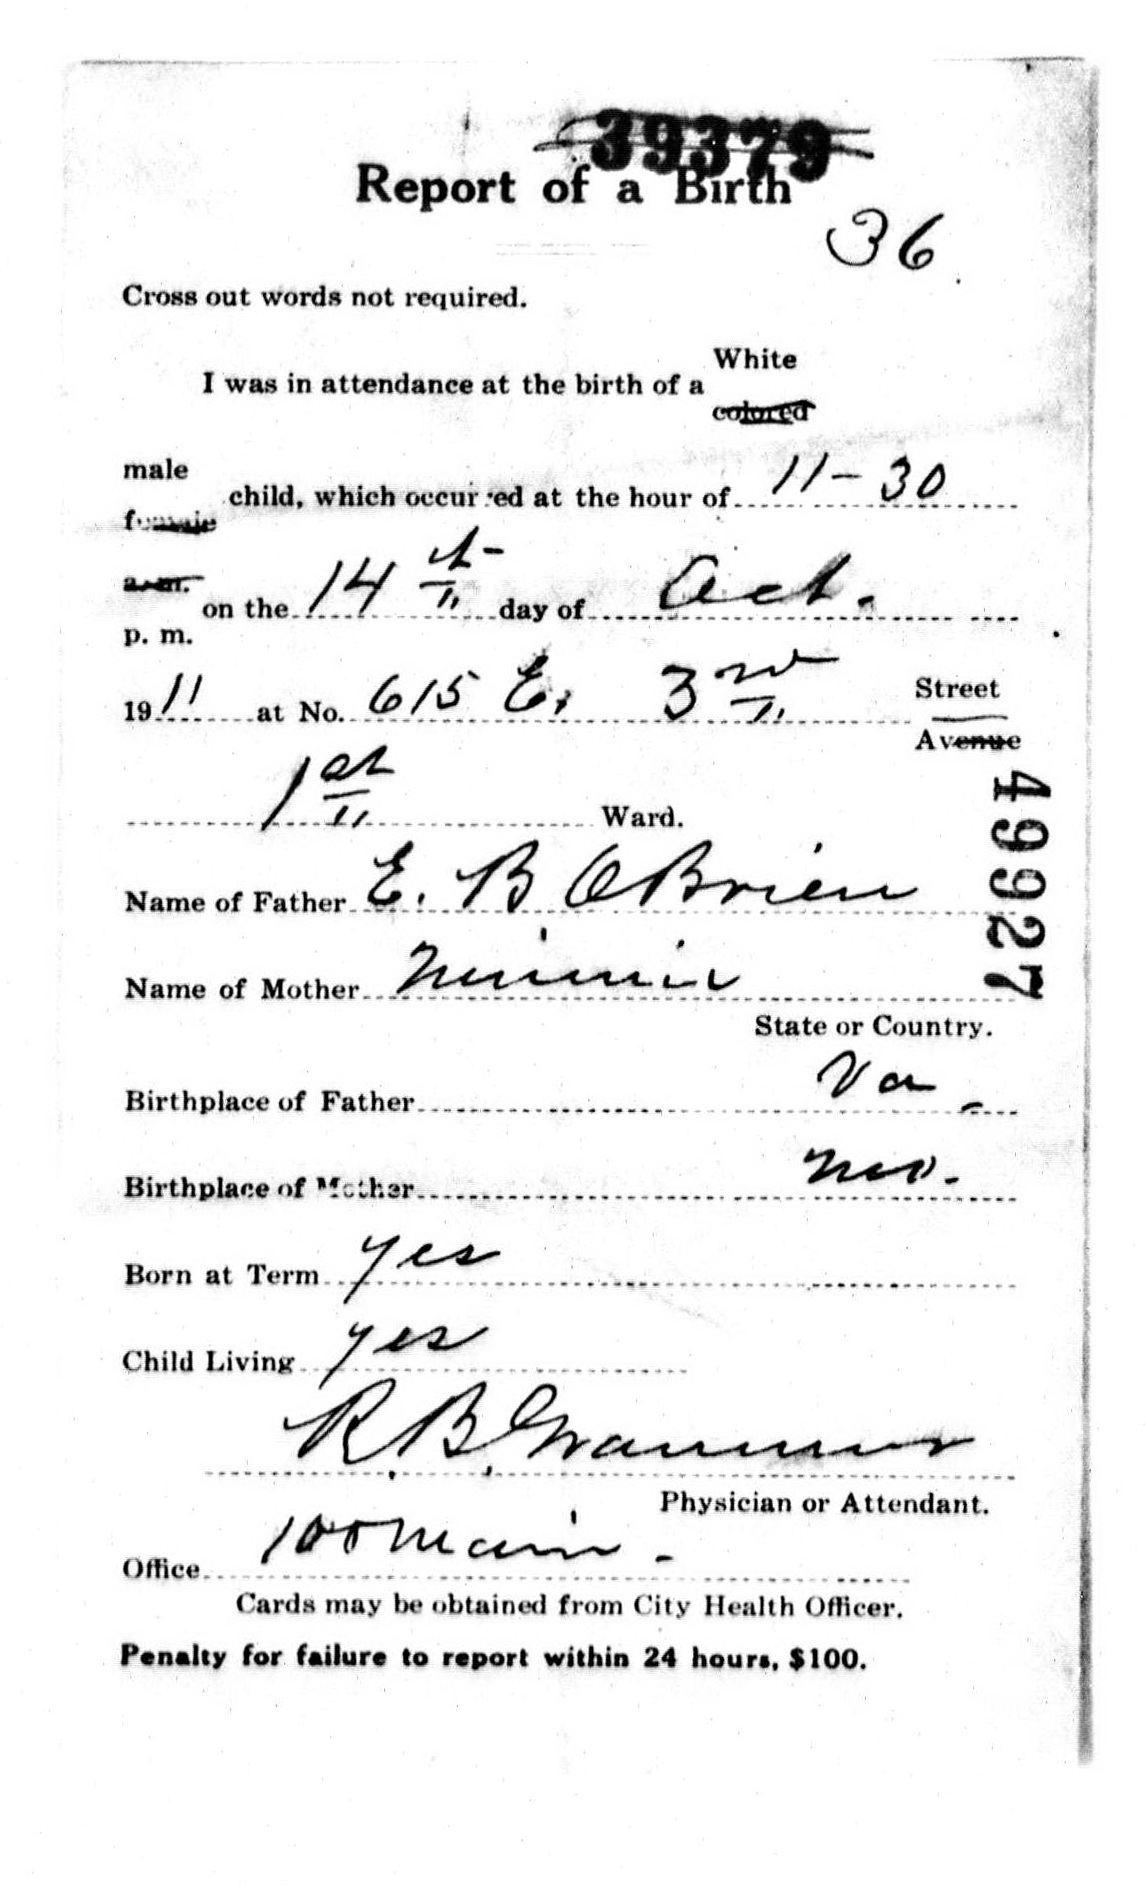 39379
Report of a Birth
36
Cross out words not required.
White
I was in attendance at the birth of a
colored
male
child, which occurred at the hour of 11-30
female
a. m.
on the 14th day of Oct.
p. m.
1911 at No. 615 E. 3rd Street
Avenue
1st Ward.
49927
Name of Father E. B O'Brien
Name of Mother Minnie
State or Country.
Birthplace of Father Va
Birthplace of Mother Mo.
Born at Term yes
Child Living yes
R. B.
Physician or Attendant.
Office 100 Main
Cards may be obtained from City Health Officer.
Penalty for failure to report within 24 hours, $100.